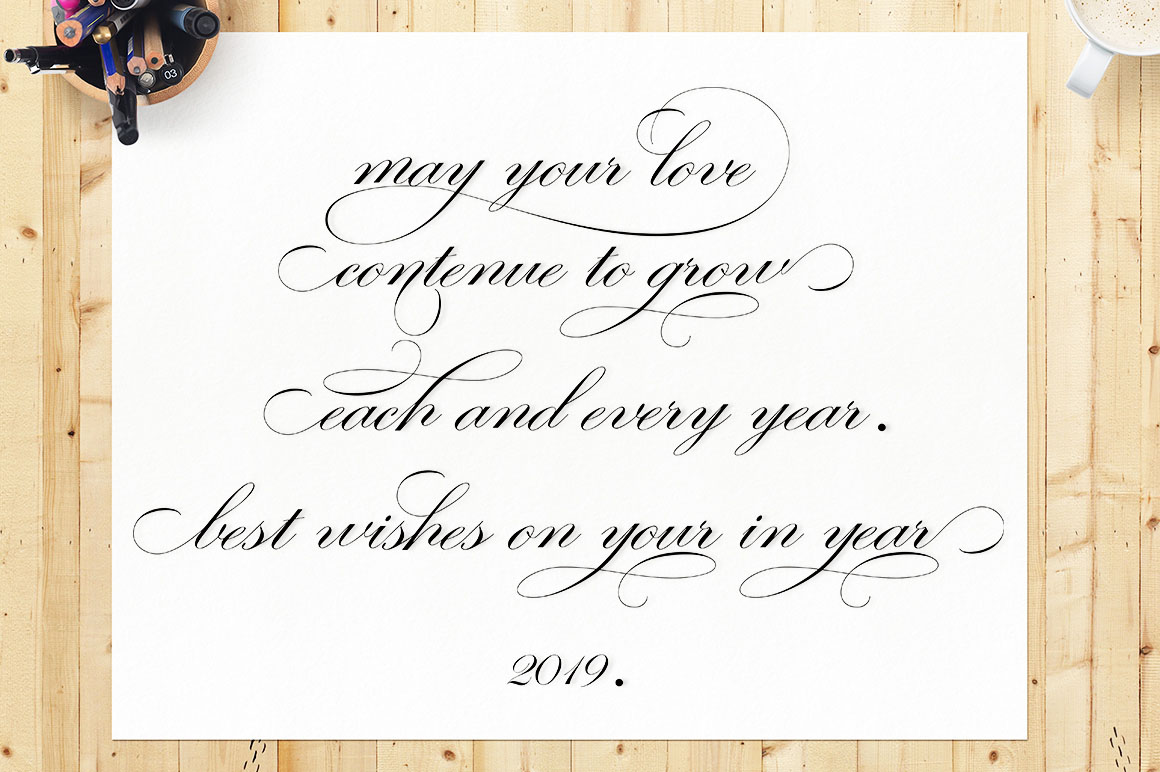 03
may your love
contenue to grow
each and every year.
best wishes on your in year
2019.